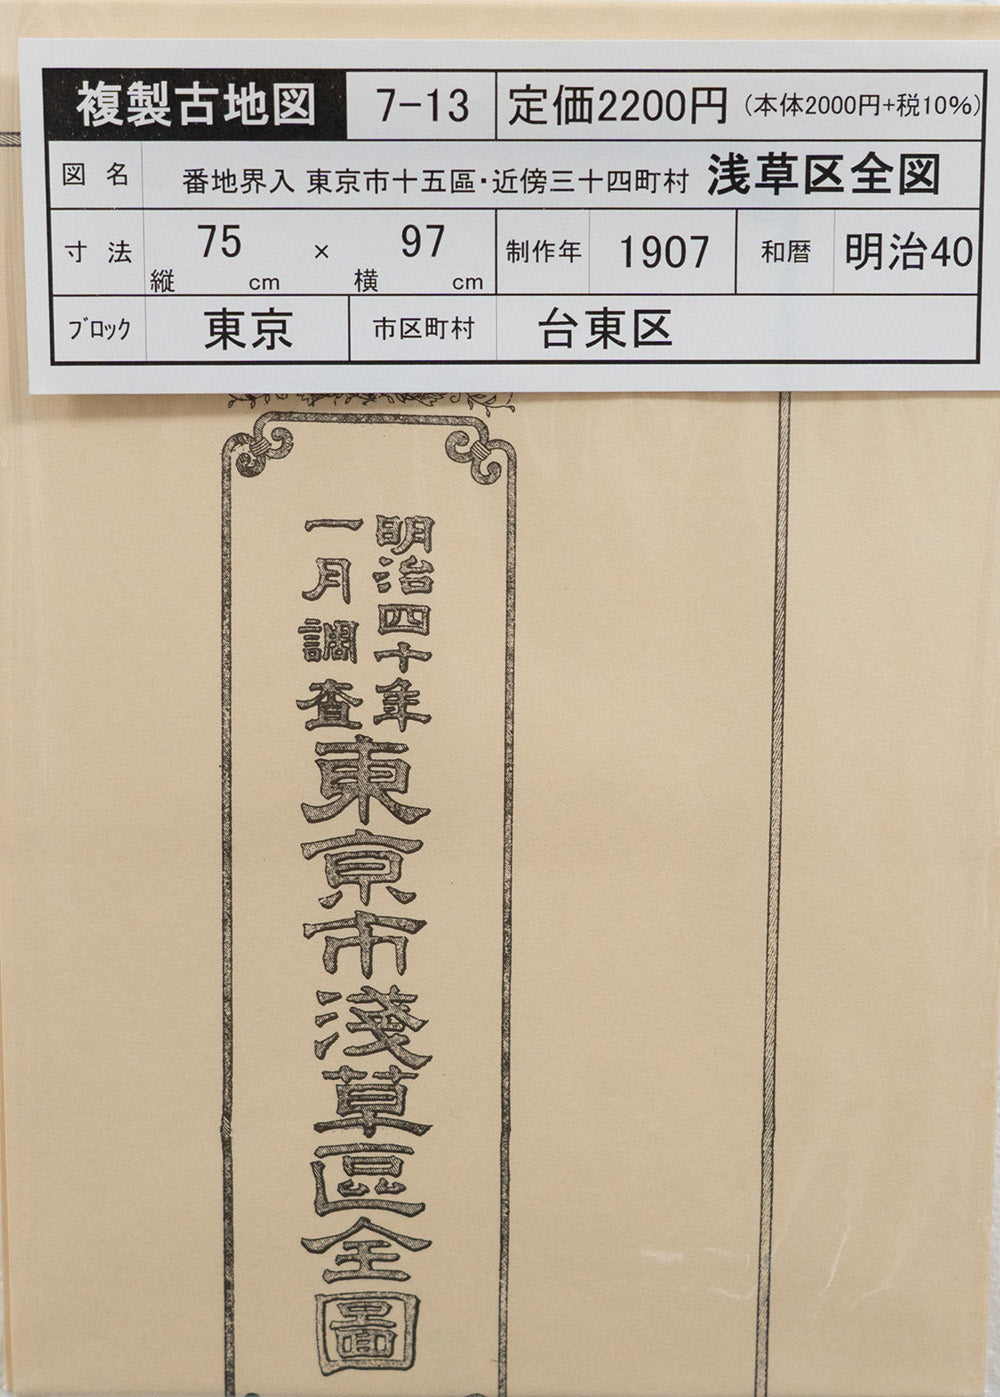 複製古地図 7-13 定価2200円（本体2000円+税10%）
図名 番地界入 東京市十五區・近傍三十四町村 浅草区全図
寸法 縦 75 cm × 横 97 cm 制作年 1907 和暦 明治40
ブロック 東京 市区町村 台東区
明治四十年
一月調査
東京市淺草區全圖